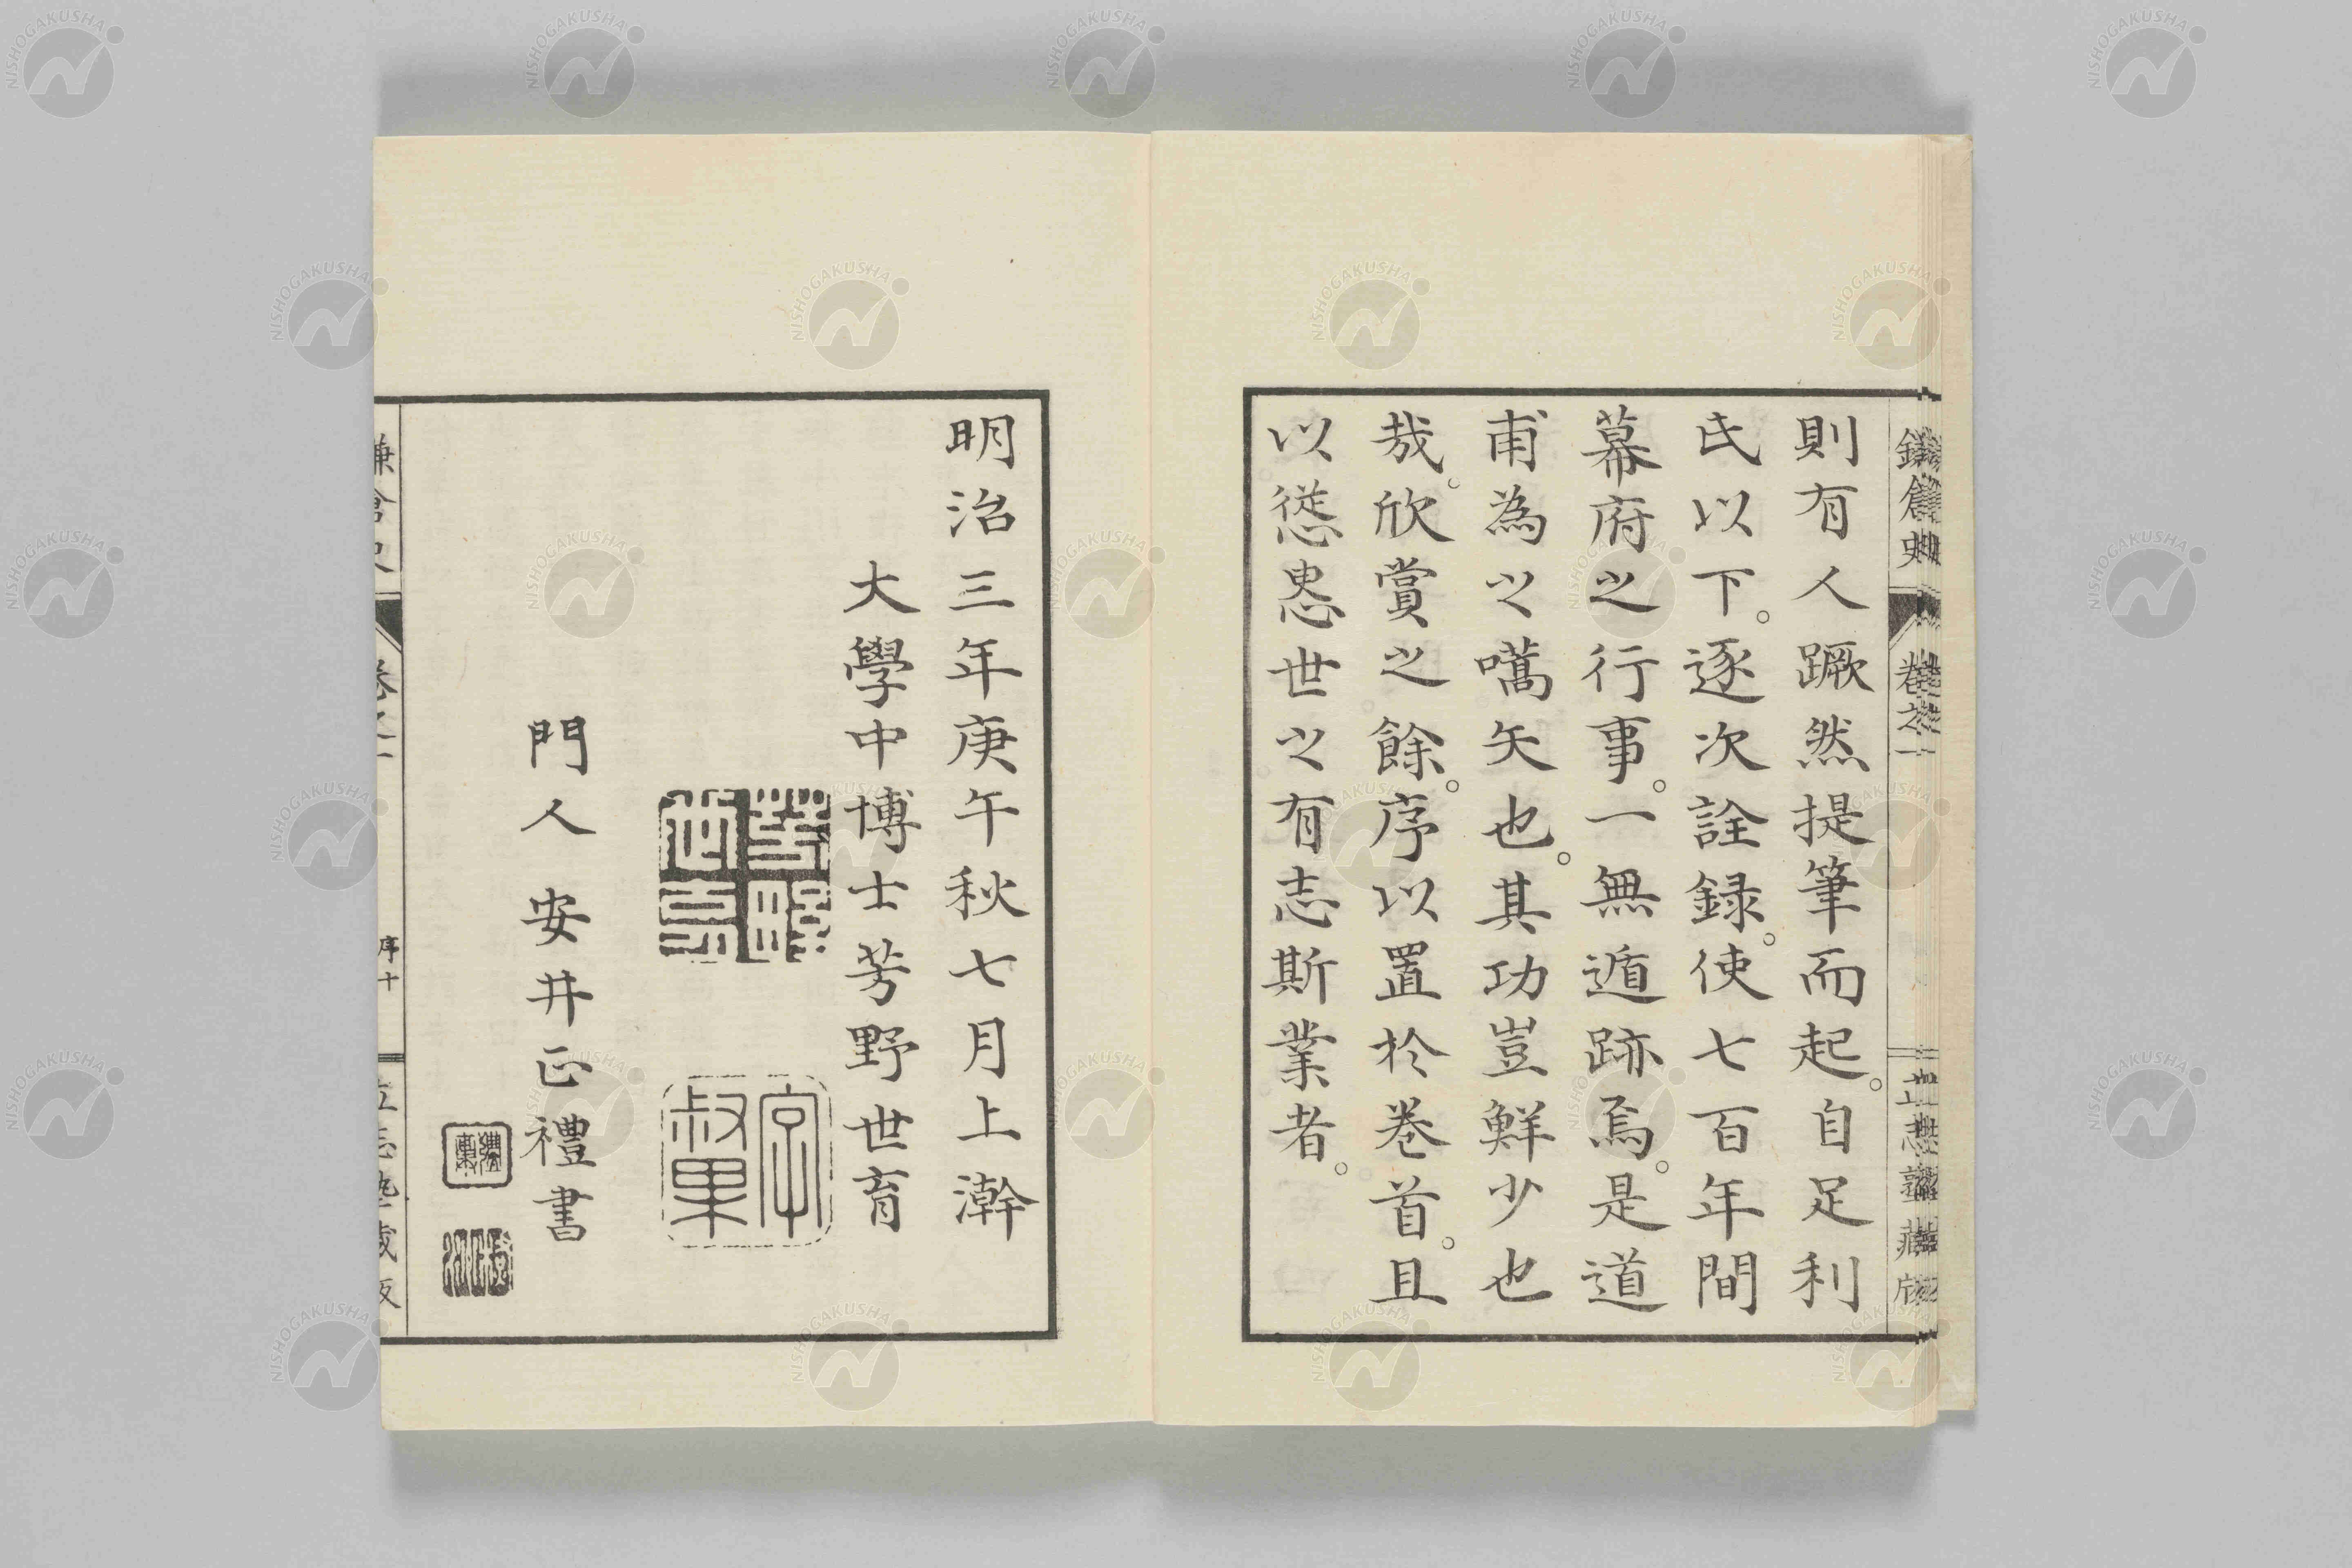 則有人蹶然提筆而起。自足利
氏以下。逐次詮録。使七百年間
幕府之行事。一無遁跡焉。是道
甫為之嚆矢也。其功豈鮮少也
哉。欣賞之餘。序以置於巻首。且
以慫恿世之有志斯業者。
明治三年庚午秋七月上澣
大學中博士芳野世育
字叔果
門人安井正禮書
鎌倉史
巻之一
序十
NISHOGAKUSHA